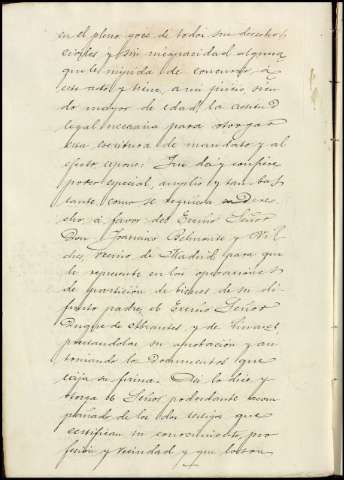 en el pleno goce de todos sus derechos
civiles y sin incapacidad alguna
que le impida de concurrir á
este acto y tiene, á mi juicio, sien
do mayor de edad, la aptitud
legal necesaria para otorgar
esta escritura de mandato y al
efecto expone: Que da y confiere
poder especial, amplio y tan bas
tante como se requiera en Dere
cho á favor del Excmo Señor
Don Mariano Belmonte y Vil
ches, vecino de Madrid para que
le represente en las operaciones
de partición de bienes de su di
funto padre, el Excmo Señor
Duque de Abrantes, y de Linares
prestándoles su aprobación y au
torizando los Documentos que
exija su firma. Así lo dice y
otorga el Señor poderdante acom
pañado de los dos testigos que
certifican su conocimiento, pro
fesión y vecindad y que lo son